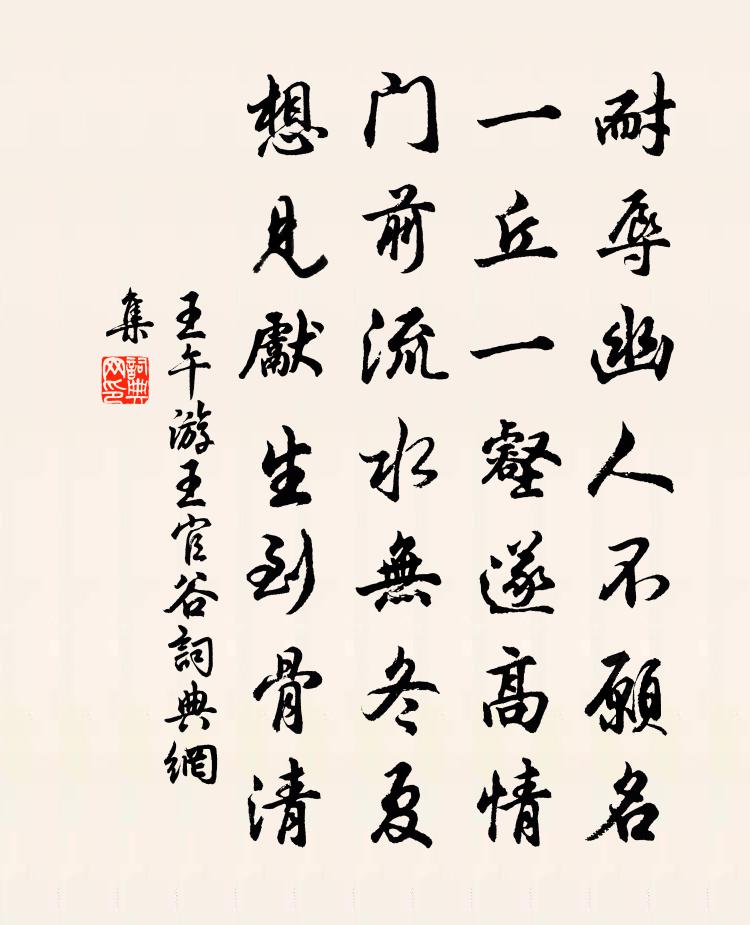 耐辱幽人不愿名
一丘一壑遂高情
门前流水無冬夏
想見獻生到骨清
王午游王官谷詞典網
集
詞典網印